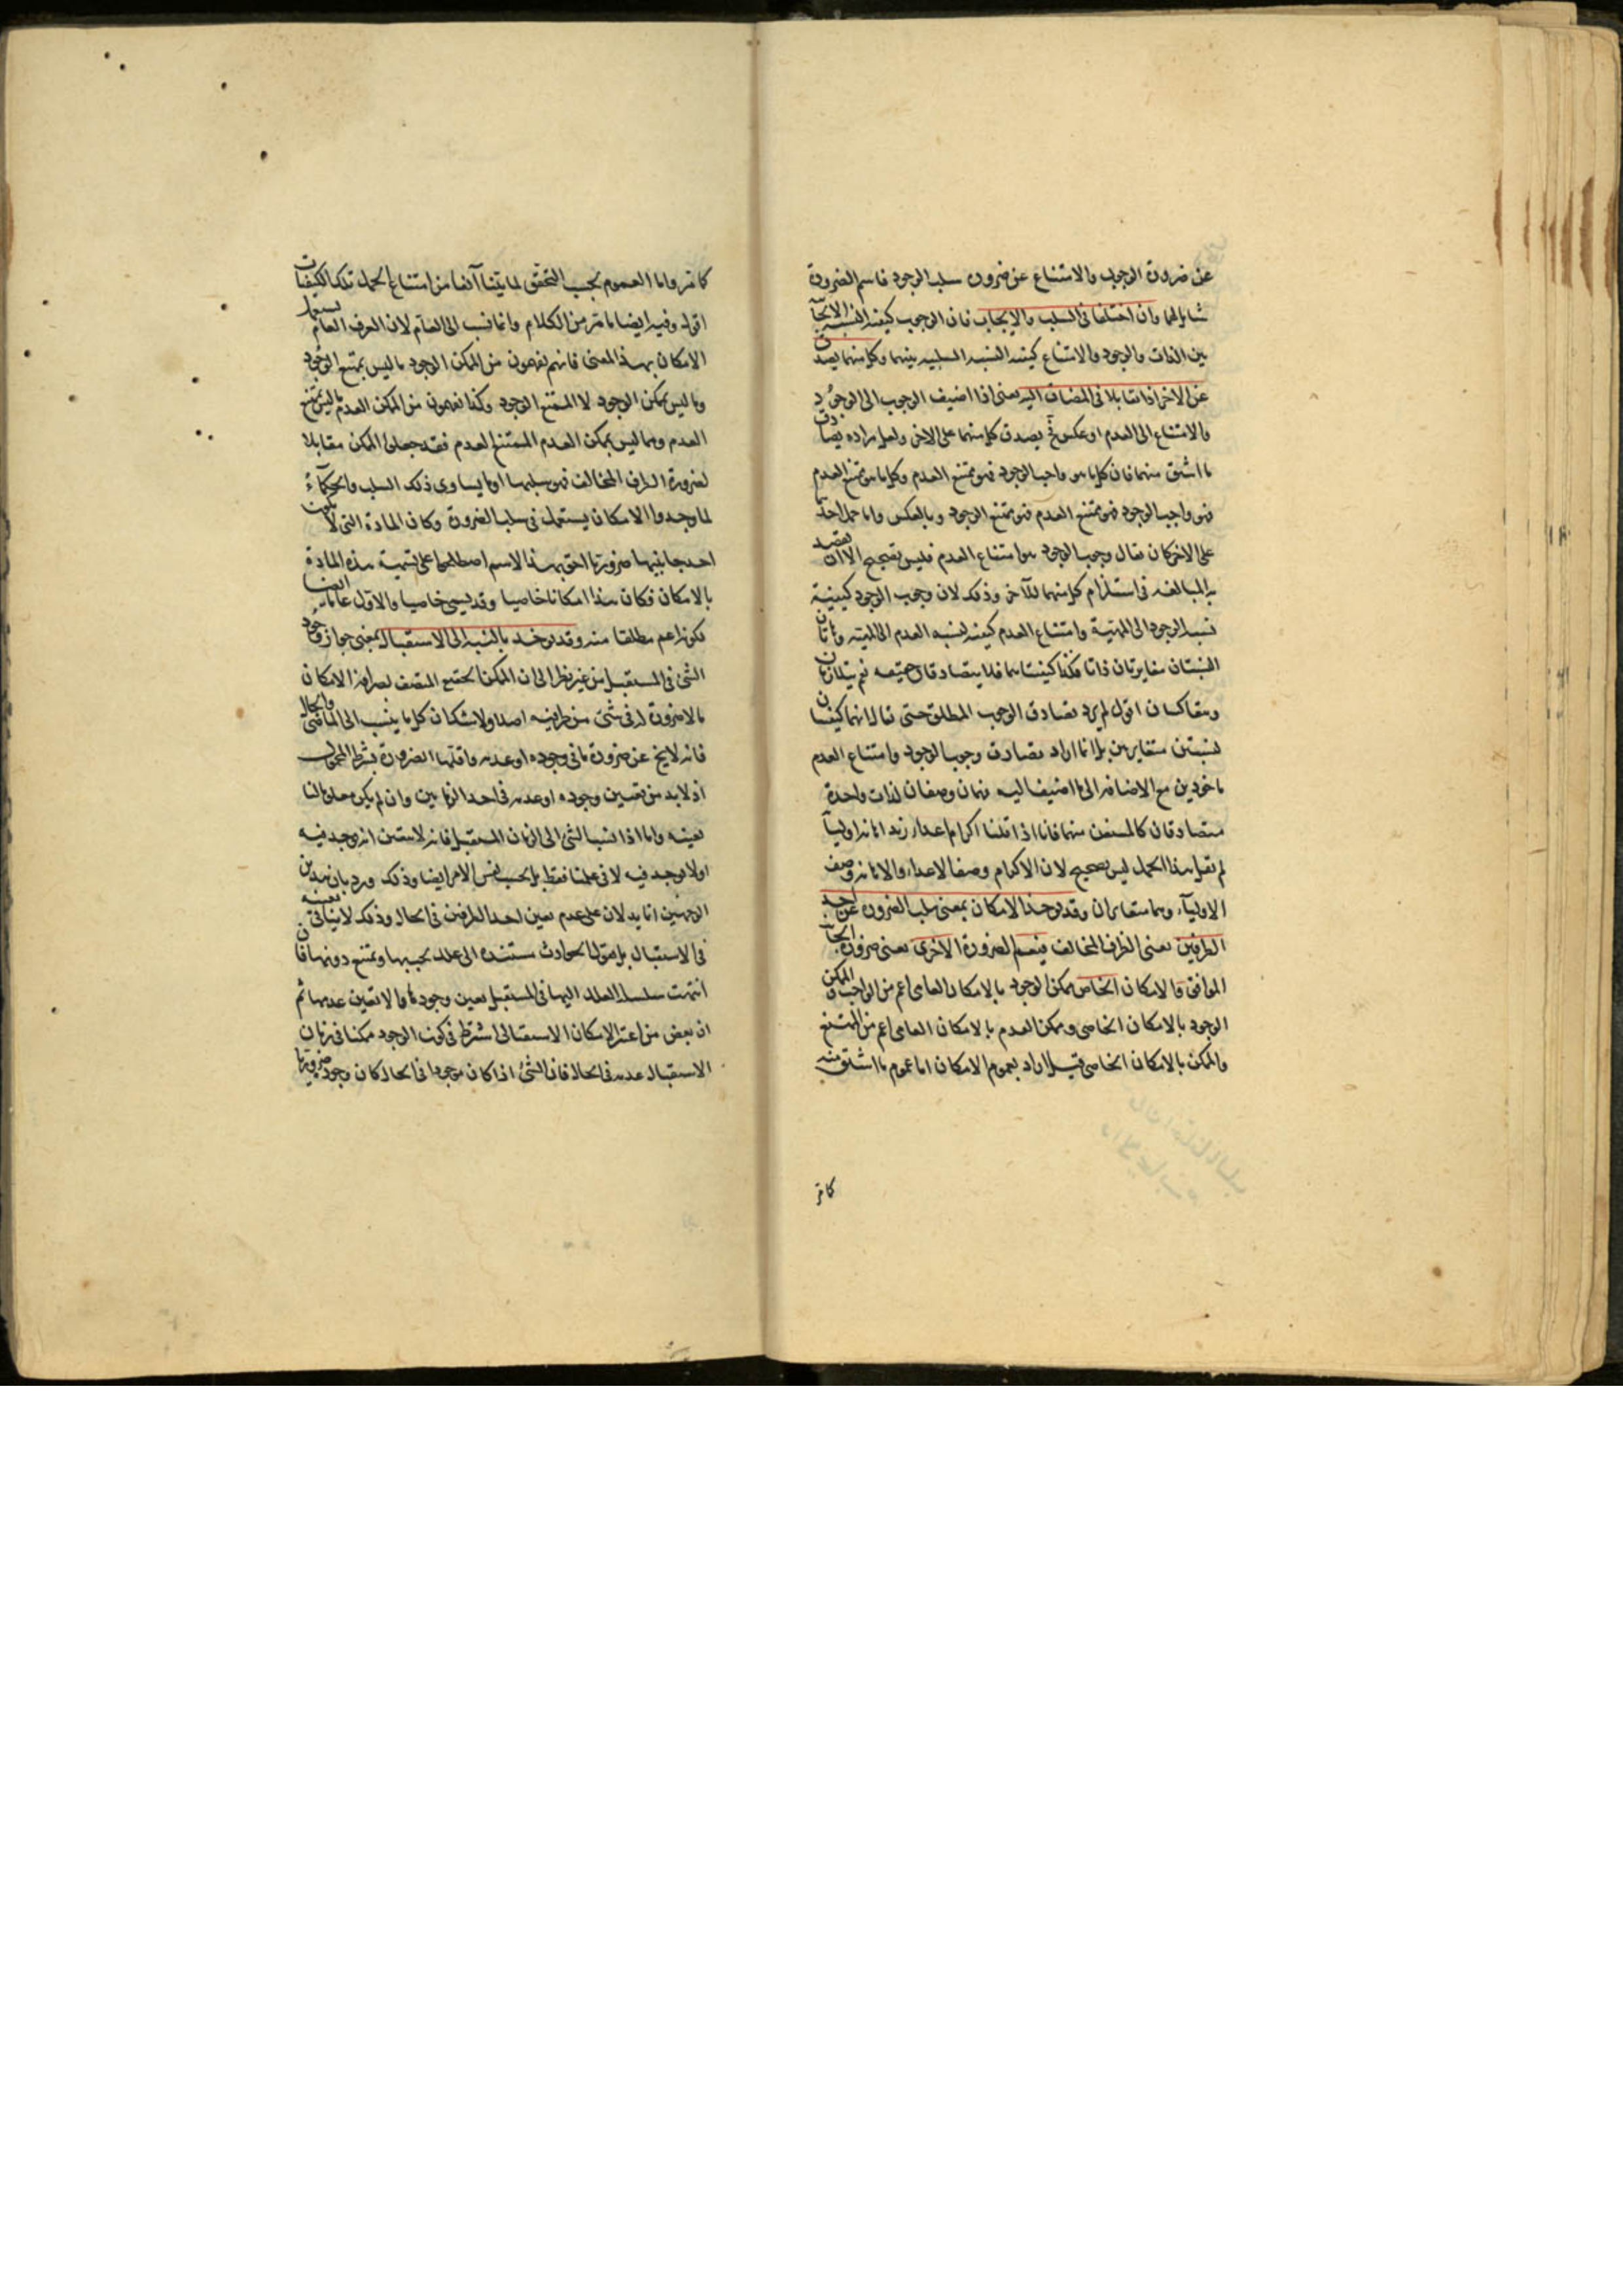 عن ضرورة الوجود والامتناع عن ضرورة سلب الوجود فاسم الضرورة
شامل لهما وان اختلفا فى السلب والايجاب فان الوجوب كيفية النسبة الايجابية
بين الذات والوجود والامتناع كيفية النسبة السلبية بينهما وكل منهما يصدق
على الاخر اذا تقابلا فى المضاف اليه يعنى اذا اضيف الوجوب الى الوجود
والامتناع الى العدم او عكس فح يصدق كل منهما على الاخر ولعل مراده يصادق
ما اشتق منهما فان كل ما هو واجب الوجود فهو ممتنع العدم وكل ما هو ممتنع العدم
فهو واجب الوجود فهو ممتنع العدم فهو ممتنع الوجود وبالعكس واما حمل احد
على الاخر كان يقال وجوب الوجود هو امتناع العدم فليس بصحيح الا ان يقصد
به المبالغة فى استلزام كل منهما للآخر وذلك لان وجوب الوجود كيفية
نسبة الوجود الى المهية وامتناع العدم كيفية نسبة العدم الى المهية وهاتان
النسبتان متغايرتان ذاتا فكذا كيفيتاهما فلا يتصادقان حقيقة نعم يتلازمان
ويتعاكسان اقول لم يرد تصادق الوجوب المطلق حتى يقال انهما كيفيتان
لنسبتين متغايرتين بل انما اراد تصادق وجوب الوجود وامتناع العدم
ماخوذين مع الاضافة الى ما اضيفا اليه فهما وصفان لذات واحدة
متصادقان كالمشتق منهما فانا اذا قلنا اكرام اعداء زيد اهانة اوليائه
لم نقل هذا الحمل ليس بصحيح لان الاكرام وصف الاعداء والاهانة وصف
الاولياء وهما متغايران وقد يؤخذ الامكان بمعنى سلب الضرورة عن احد
الطرفين يعنى الطرف المخالف فيعم الضرورة الاخرى يعنى ضرورة الجانب
الموافق والامكان الخاص فممكن الوجود بالامكان العامى اعم من الواجب والممكن
الوجود بالامكان الخاصى وممكن العدم بالامكان العامى اعم من الممتنع
والممكن بالامكان الخاصى قيل اراد بعموم الامكان اما عموم ما اشتق منه
كما مر
كما مر واما العموم بحسب التحقق لما بيّنا آنفا من امتناع حمل تلك الكيفيات
اقول وفيه ايضا ما مر من الكلام وانما نسب الى العام لان العرف العام يستعمل
الامكان بهذا المعنى فانهم يفهمون من الممكن الوجود ما ليس بممتنع الوجود
وما ليس بممكن الوجود الممتنع الوجود وكذا يفهمون من الممكن العدم ما ليس بممتنع
العدم ومما ليس بممكن العدم الممتنع العدم فقد جعلوا الممكن مقابلا
لضرورة الطرف المخالف فهو سلبها او ما يساوى ذلك السلب والحكماء
لما وجدوا الامكان يستعمل فى سلب الضرورة وكان المادة التى لا يكون
احد جانبيها ضروريا احق بهذا الاسم اصطلحوا على تسمية هذه المادة
بالامكان فكان هذا امكانا خاصا وقد يسمى خاصيا والاول عاما ايضا
لكونه اعم مطلقا منه وقد يؤخذ بالنسبة الى الاستقبال بمعنى جواز وجود
الشئ فى المستقبل من غير نظر الى ان الممكن الحقيقى المتصف بصرافة الامكان
ما لا ضرورة له فى شئ من طرفيه اصلا ولا شك ان كل ما ينسب الى الماضى والحال
فانه لا يخ عن ضرورة ما فى وجوده او عدمه واقلها الضرورة بشرط المحمول
اذ لا بد من تعيين وجوده او عدمه فى احد الزمانين وان لم يكن معلوما لنا
بعينه واما اذا نسب الشئ الى الزمان المستقبل فانه لا يتعين انه يوجد فيه
او لا يوجد فيه لا فى علمنا فقط بل بحسب نفس الامر ايضا وذلك ورد بان هذين
الوجهين انما يدلان على عدم تعين احد الطرفين فى الحال وذلك لا ينافى تعينه
فى الاستقبال بل نقول الحوادث مستندة الى علل تجب بها وتمتنع دونها فان
انتهت سلسلة العلل اليها فى المستقبل تعين وجودها والا تعين عدمها ثم
ان بعض من اعتبر الامكان الاستقبالى اشترط فى كون الوجود ممكنا فى زمان
الاستقبال عدمه فى الحال فان الشئ اذا كان موجودا فى الحال كان وجوده ضروريا